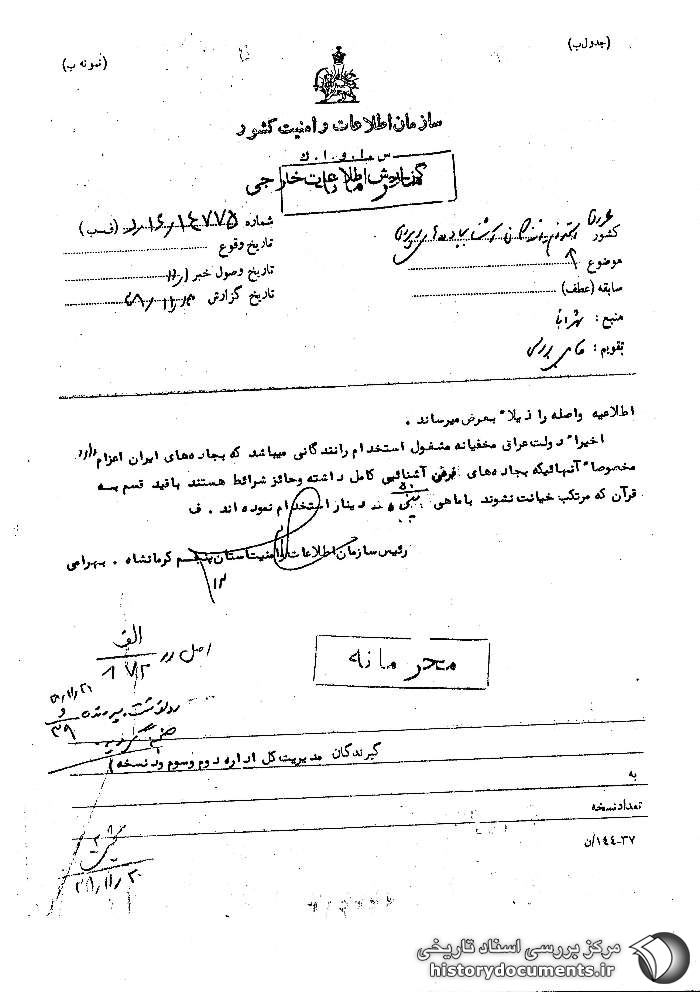 (جدول ب)
(نمونه ب)
سازمان اطلاعات و امنیت کشور
س.ا.و.ا.ک
گزارش اطلاعات خارجی
کشور عراق
موضوع استخدام رانندگان آشنا بجاده‌های ایران
سابقه (عطف)
منبع:
تقویم:
شماره ۱۶/۱۴۷۷۵ (ف‌ب)
تاریخ وقوع
تاریخ وصول خبر
تاریخ گزارش
اطلاعیه واصله را ذیلا" بعرض میرساند.
اخیرا" دولت عراق مخفیانه مشغول استخدام رانندگانی میباشد که بجاده‌های ایران اعزام دارد
مخصوصا" آنهائیکه بجاده‌های فرعی آشنائی کامل داشته و حائز شرائط هستند با قید قسم به
قرآن که مرتکب خیانت نشوند با ماهی ۵۰ دینار استخدام نموده‌اند. ف
رئیس سازمان اطلاعات و امنیت استان پنجم کرمانشاه. بهرامی
اصل در الف
۸۷۲
محرمانه
گیرندگان مدیریت کل اداره دوم و سوم (دو نسخه)
به
تعداد نسخه
۳۷-۱۴۴/ن
مرکز بررسی اسناد تاریخی
historydocuments.ir